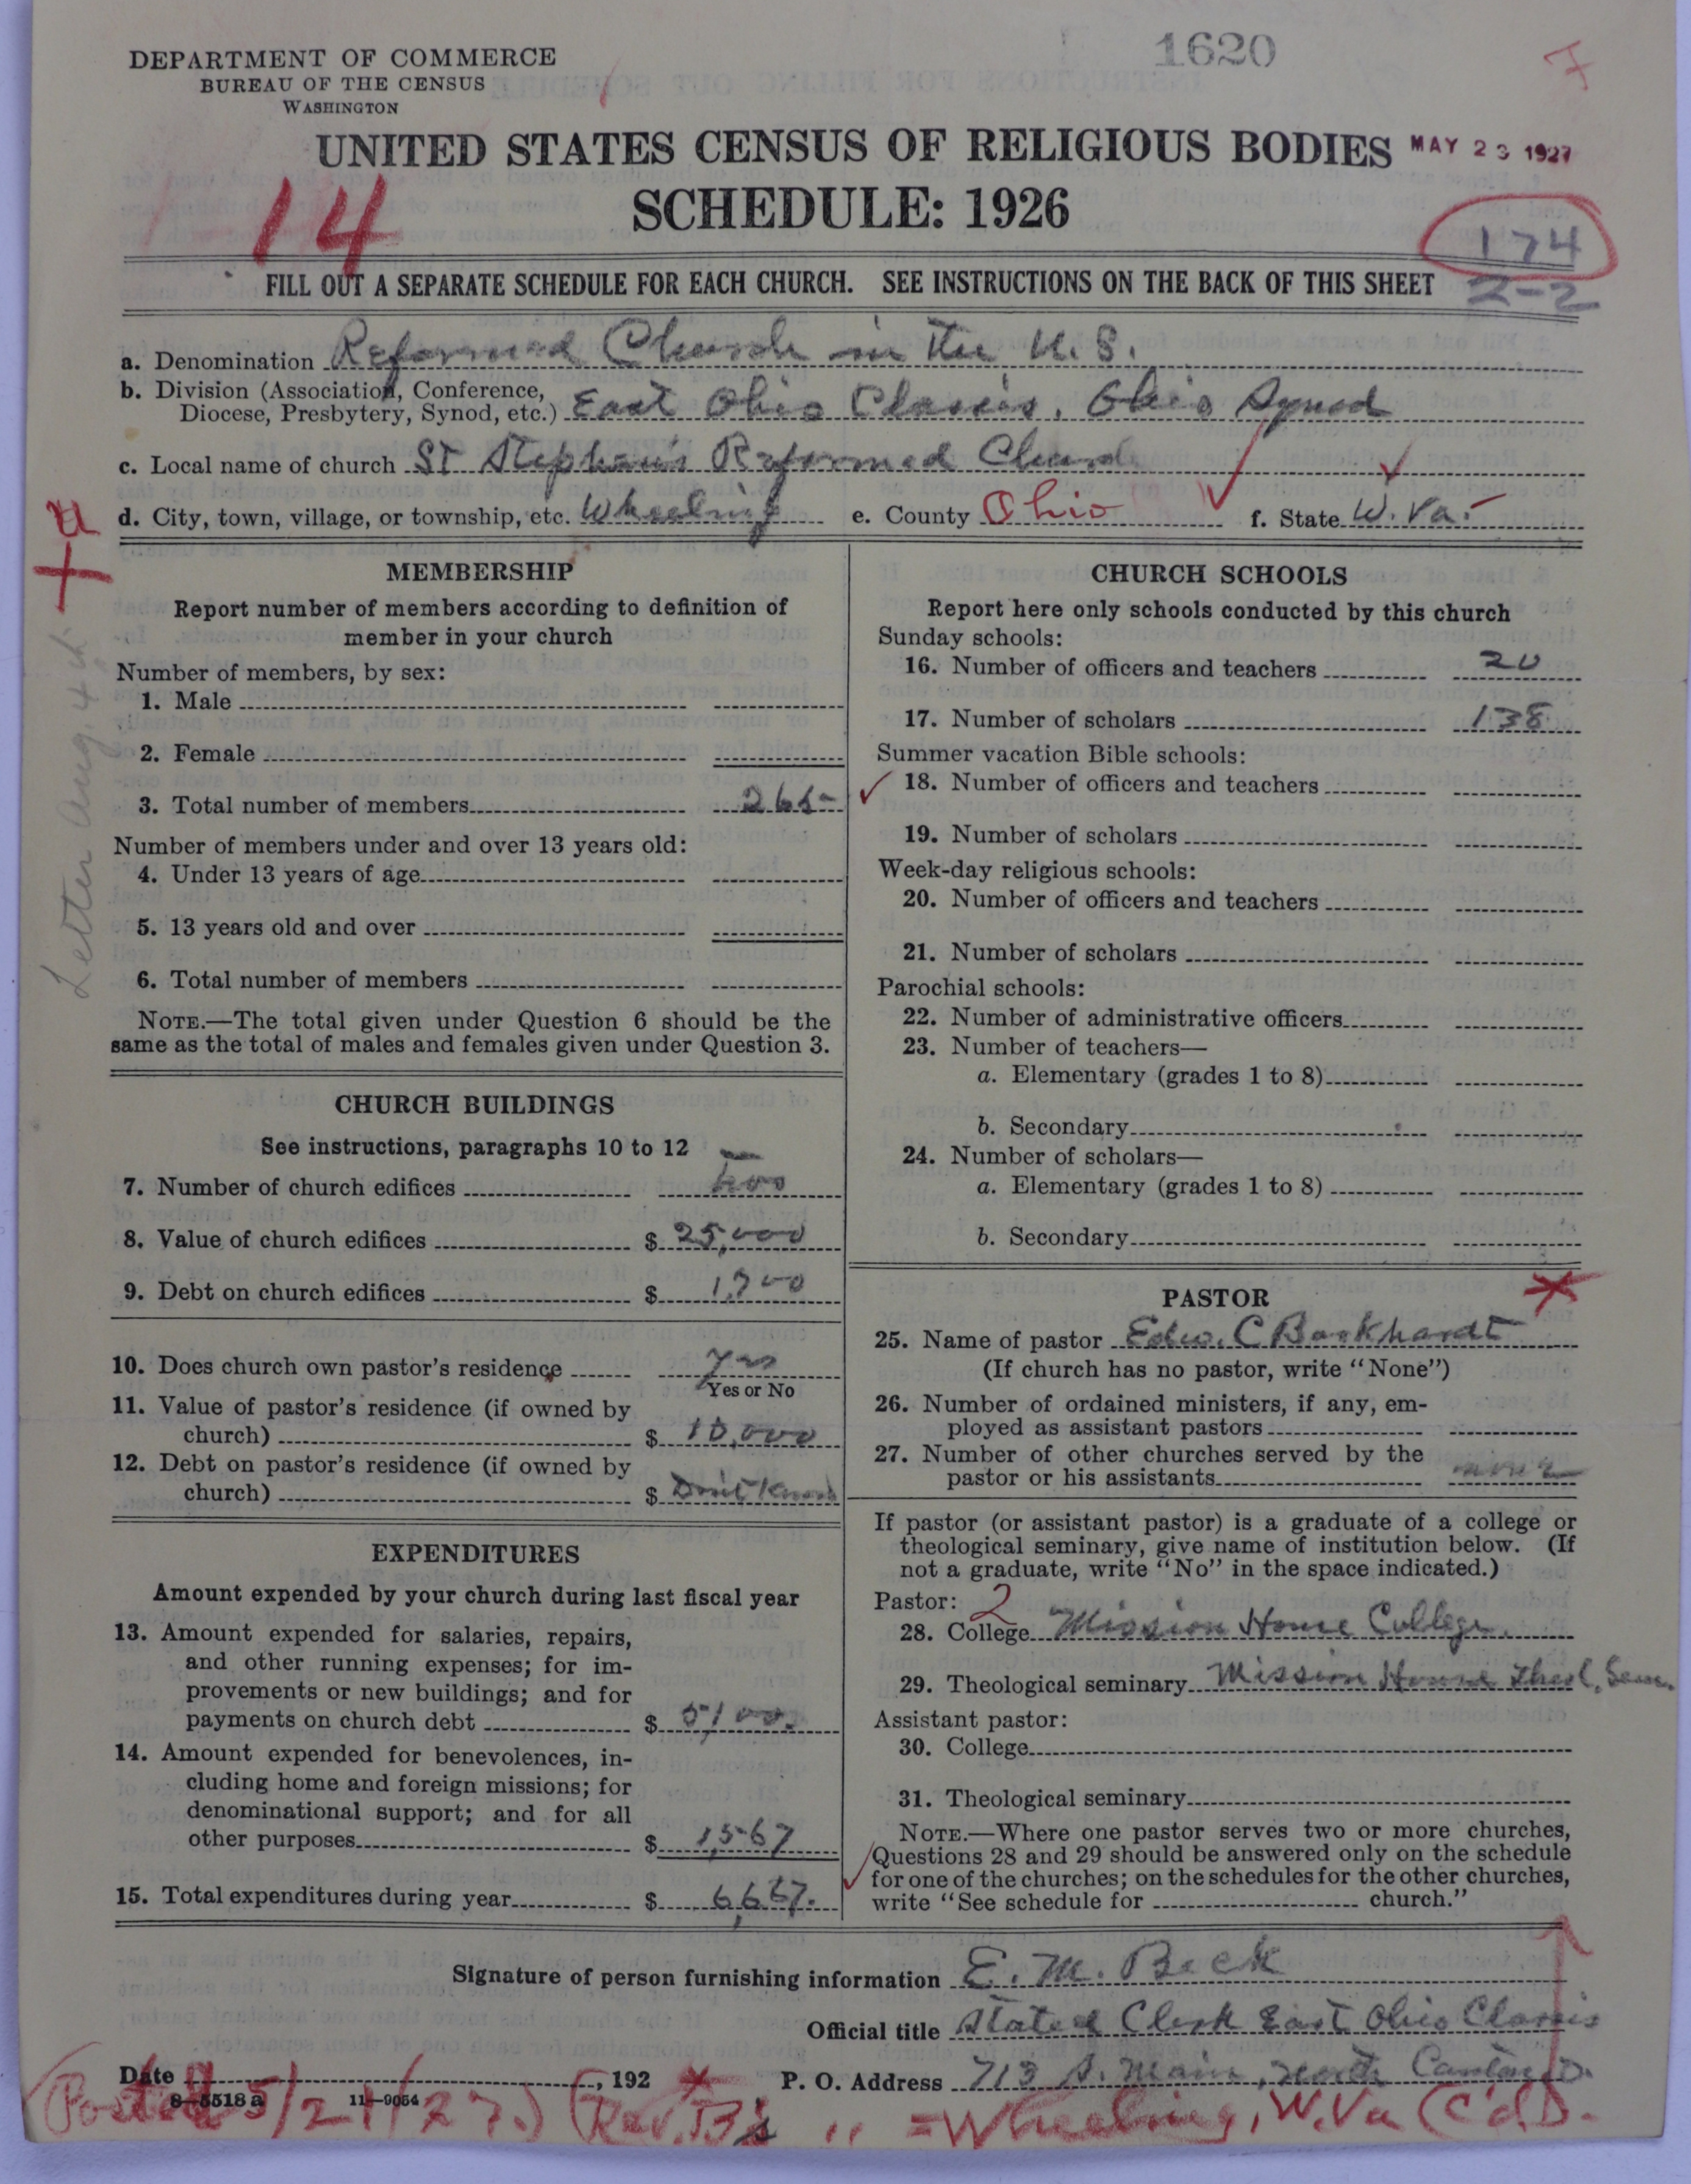 DEPARTMENT OF COMMERCE
BUREAU OF THE CENSUS
WASHINGTON
1620
UNITED STATES CENSUS OF RELIGIOUS BODIES
MAY 23 1927
14
SCHEDULE: 1926
174
FILL OUT A SEPARATE SCHEDULE FOR EACH CHURCH. SEE INSTRUCTIONS ON THE BACK OF THIS SHEET
2-2
a. Denomination Reformed Church in the U.S.
b. Division (Association, Conference,
Diocese, Presbytery, Synod, etc.) East Ohio Classis, Ohio Synod
c. Local name of church St Stephan's Reformed Church
d. City, town, village, or township, etc. Wheeling e. County Ohio f. State W. Va.
Letter Aug. 4
MEMBERSHIP
Report number of members according to definition of
member in your church
Number of members, by sex:
1. Male
2. Female
3. Total number of members 265
Number of members under and over 13 years old:
4. Under 13 years of age
5. 13 years old and over
6. Total number of members
NOTE.—The total given under Question 6 should be the
same as the total of males and females given under Question 3.
CHURCH BUILDINGS
See instructions, paragraphs 10 to 12
7. Number of church edifices two
8. Value of church edifices $ 25,000
9. Debt on church edifices $ 1,700
10. Does church own pastor's residence yes
Yes or No
11. Value of pastor's residence (if owned by
church) $ 10,000
12. Debt on pastor's residence (if owned by
church) $ Don't Know
EXPENDITURES
Amount expended by your church during last fiscal year
13. Amount expended for salaries, repairs,
and other running expenses; for im-
provements or new buildings; and for
payments on church debt $ 5,100.
14. Amount expended for benevolences, in-
cluding home and foreign missions; for
denominational support; and for all
other purposes $ 1,567
15. Total expenditures during year $ 6,667.
CHURCH SCHOOLS
Report here only schools conducted by this church
Sunday schools:
16. Number of officers and teachers 20
17. Number of scholars 138
Summer vacation Bible schools:
18. Number of officers and teachers
19. Number of scholars
Week-day religious schools:
20. Number of officers and teachers
21. Number of scholars
Parochial schools:
22. Number of administrative officers
23. Number of teachers—
a. Elementary (grades 1 to 8)
b. Secondary
24. Number of scholars—
a. Elementary (grades 1 to 8)
b. Secondary
PASTOR
25. Name of pastor Edw. C Barkhardt
(If church has no pastor, write "None")
26. Number of ordained ministers, if any, em-
ployed as assistant pastors
27. Number of other churches served by the
pastor or his assistants none
If pastor (or assistant pastor) is a graduate of a college or
theological seminary, give name of institution below. (If
not a graduate, write "No" in the space indicated.)
Pastor: 2
28. College Mission House College
29. Theological seminary Mission House Theol. Sem.
Assistant pastor:
30. College
31. Theological seminary
NOTE.—Where one pastor serves two or more churches,
Questions 28 and 29 should be answered only on the schedule
for one of the churches; on the schedules for the other churches,
write "See schedule for church."
Signature of person furnishing information E. M. Beck
Official title Stated Clerk East Ohio Classis
Date , 192
P. O. Address 713 S. Main, North Canton, O.
8—5518 a 11—9054
Posted 5/21/27.) (Rev. B's " = Wheeling, W. Va (C'd.).